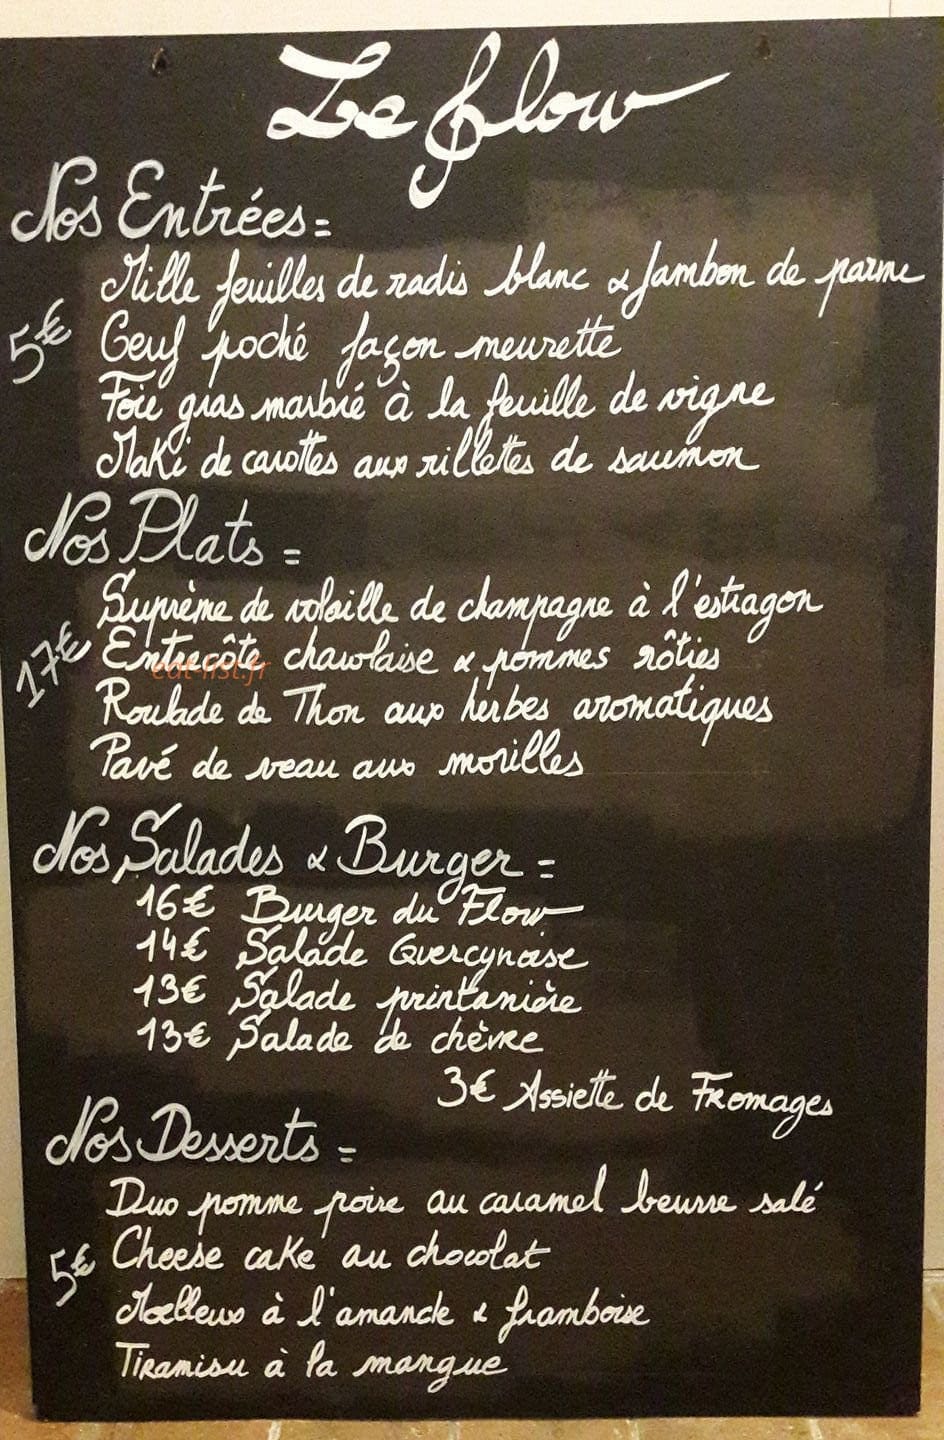 Le flow
Nos Entrées =
Mille feuilles de radis blanc & Jambon de parme
5€
Oeuf poché façon meurette
Foie gras marbré à la feuille de vigne
Maki de carottes aux rillettes de saumon
Nos Plats =
Suprème de volaille de champagne à l'estragon
17€
Entrecôte charolaise & pommes rôties
eat-list.fr
Roulade de Thon aux herbes aromatiques
Pavé de veau aux morilles
Nos Salades & Burger =
16€ Burger du Flow
14€ Salade Quercynoise
13€ Salade printanière
13€ Salade de chèvre
3€ Assiette de Fromages
Nos Desserts =
Duo pomme poire au caramel beurre salé
5€ Cheese cake au chocolat
Moelleux à l'amande & framboise
Tiramisu à la mangue